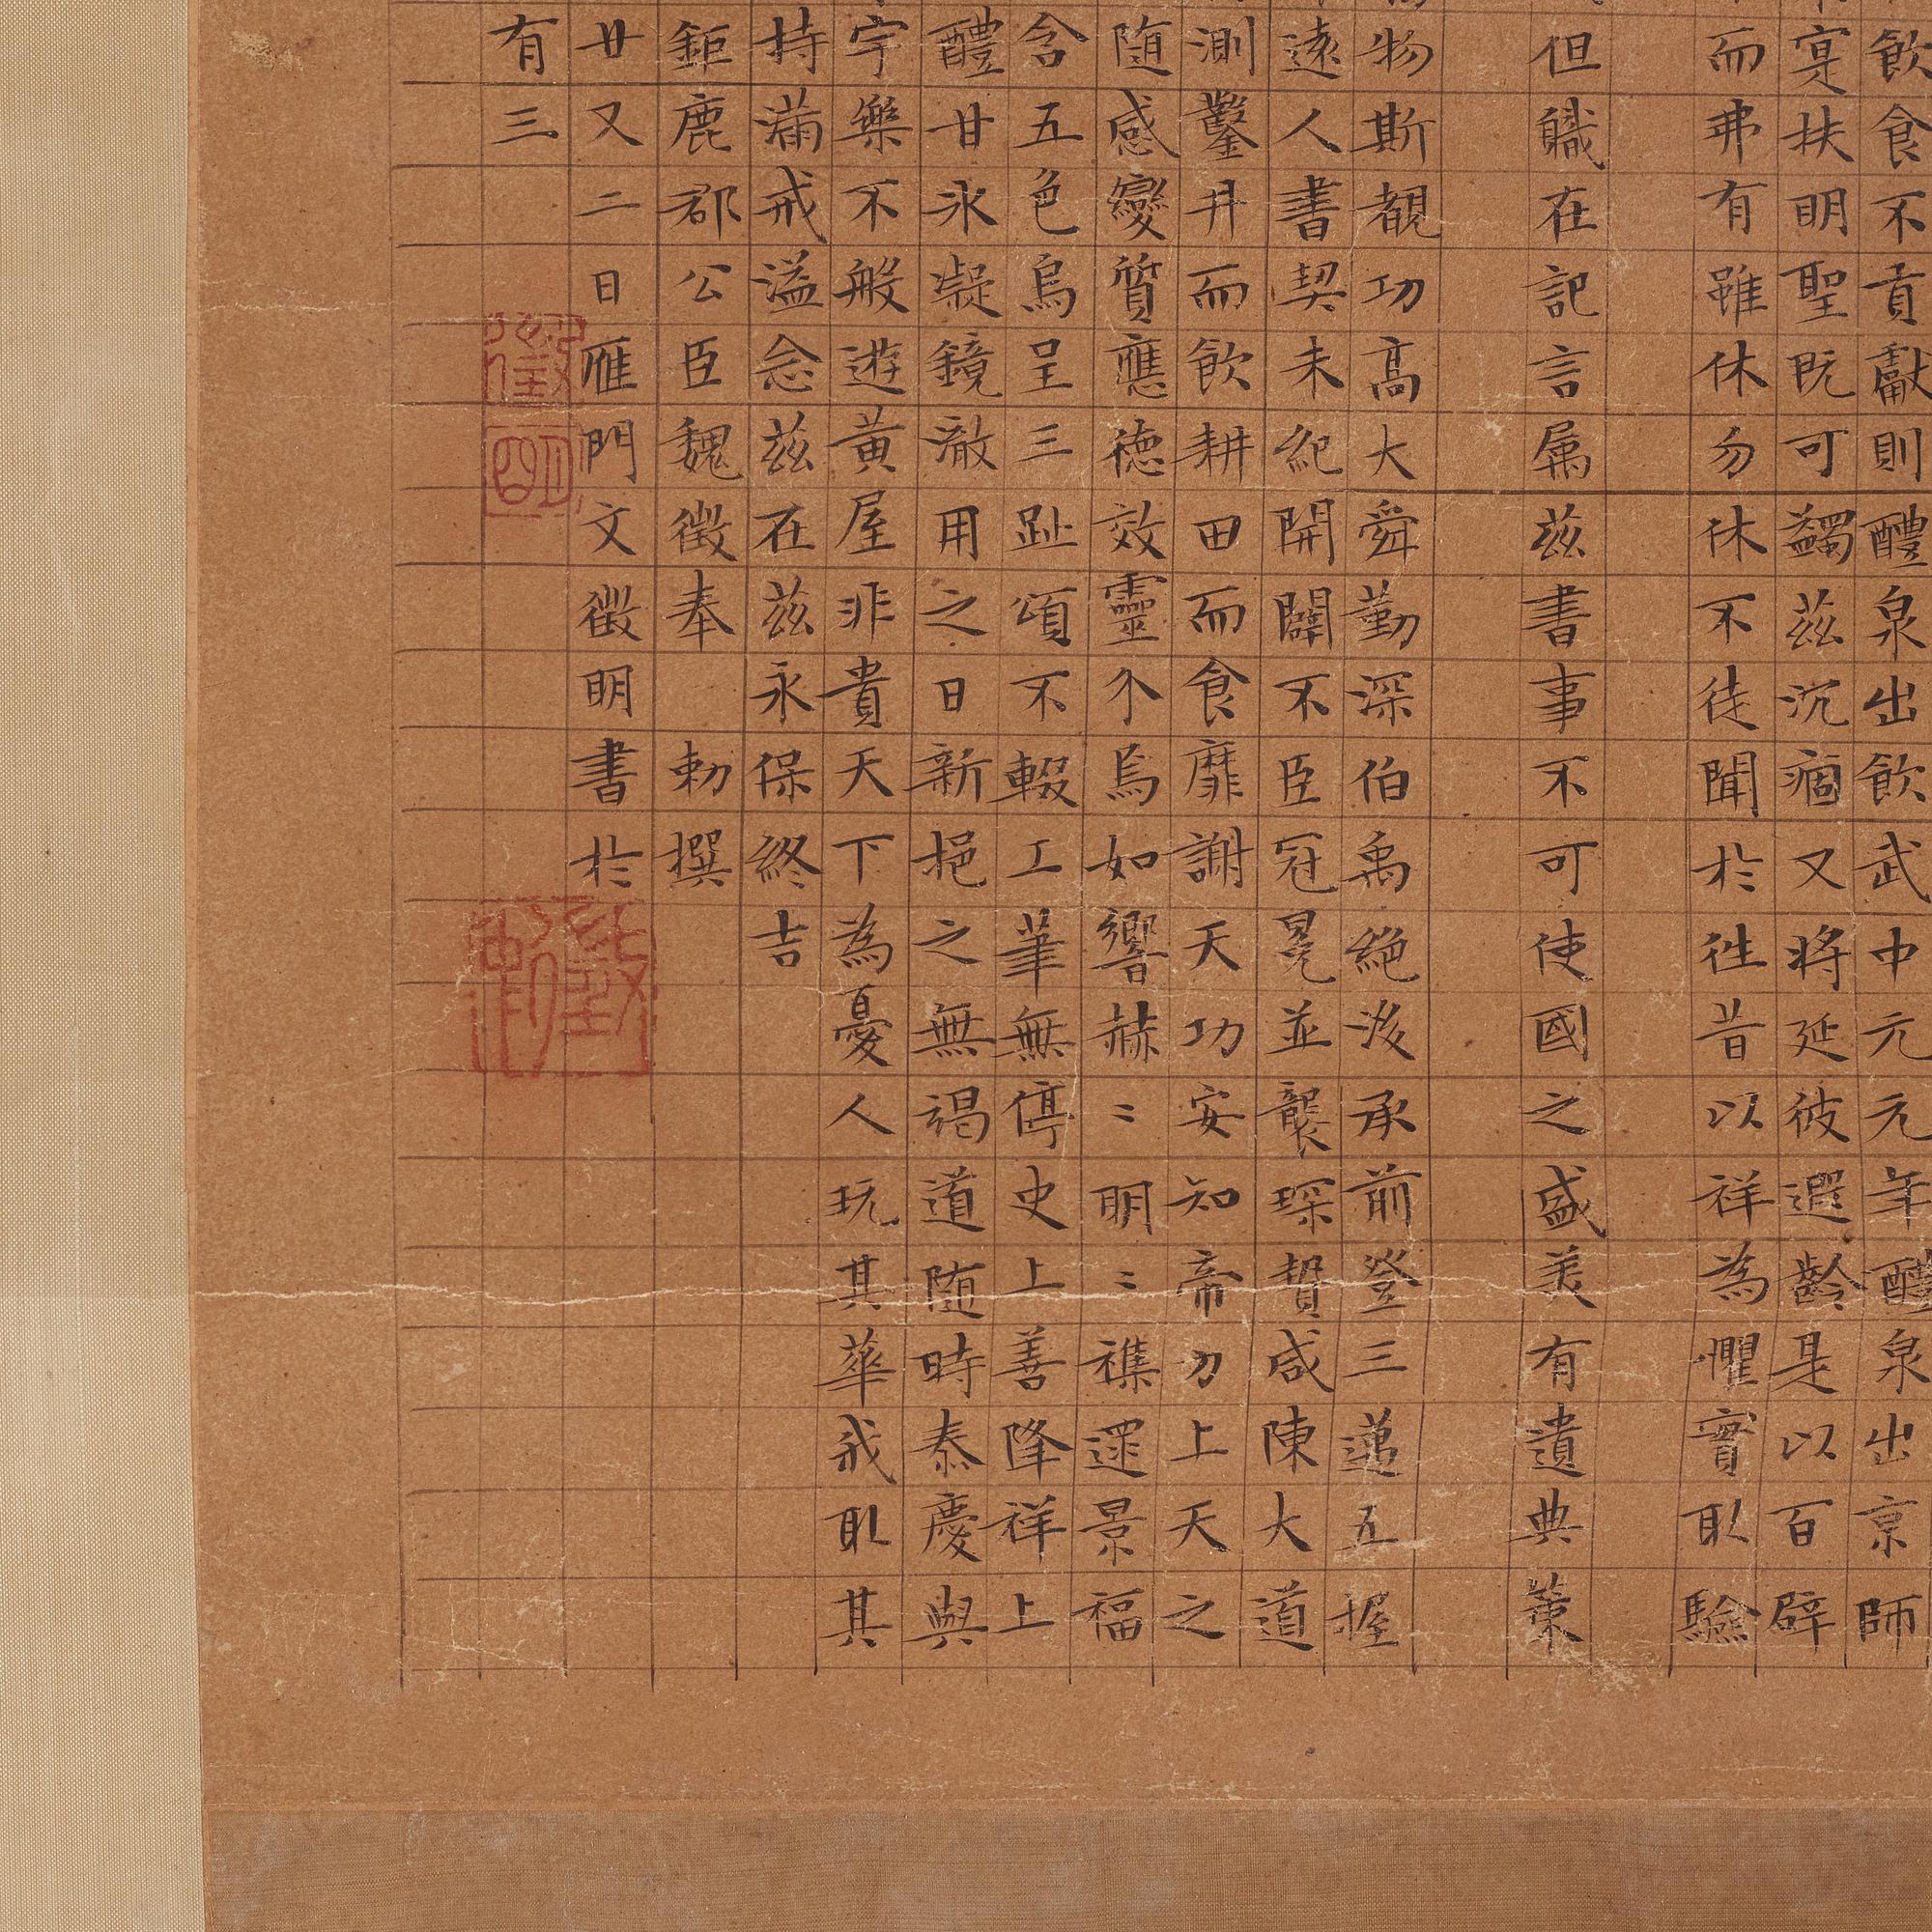 飲食不貢獻則醴泉出飲武中元元年醴泉出京師
寔扶明聖既可蠲茲沉痼又將延彼遐齡是以百辟
而弗有雖休勿休不徒聞於往昔以祥為懼實取驗
但職在記言属茲書事不可使國之盛美有遺典策
物斯覩功高大舜勤深伯禹絕後承前登三邁五握
遠人書契未紀開闢不臣冠冕並襲琛贄咸陳大道
測鑿井而飲耕田而食靡謝天功安知帝力上天之
随感變質應德效靈个焉如響赫〻明〻襍遝景福
含五色烏呈三趾頌不輟工筆無停史上善降祥上
醴甘氷凝鏡澈用之日新挹之無竭道随時泰慶與
宇樂不般遊黃屋非貴天下為憂人玩其華我取其
持滿戒溢念茲在茲永保終吉
鉅鹿郡公臣魏徵奉 勅撰
廿又二日雁門文徵明書於
有三
徵明